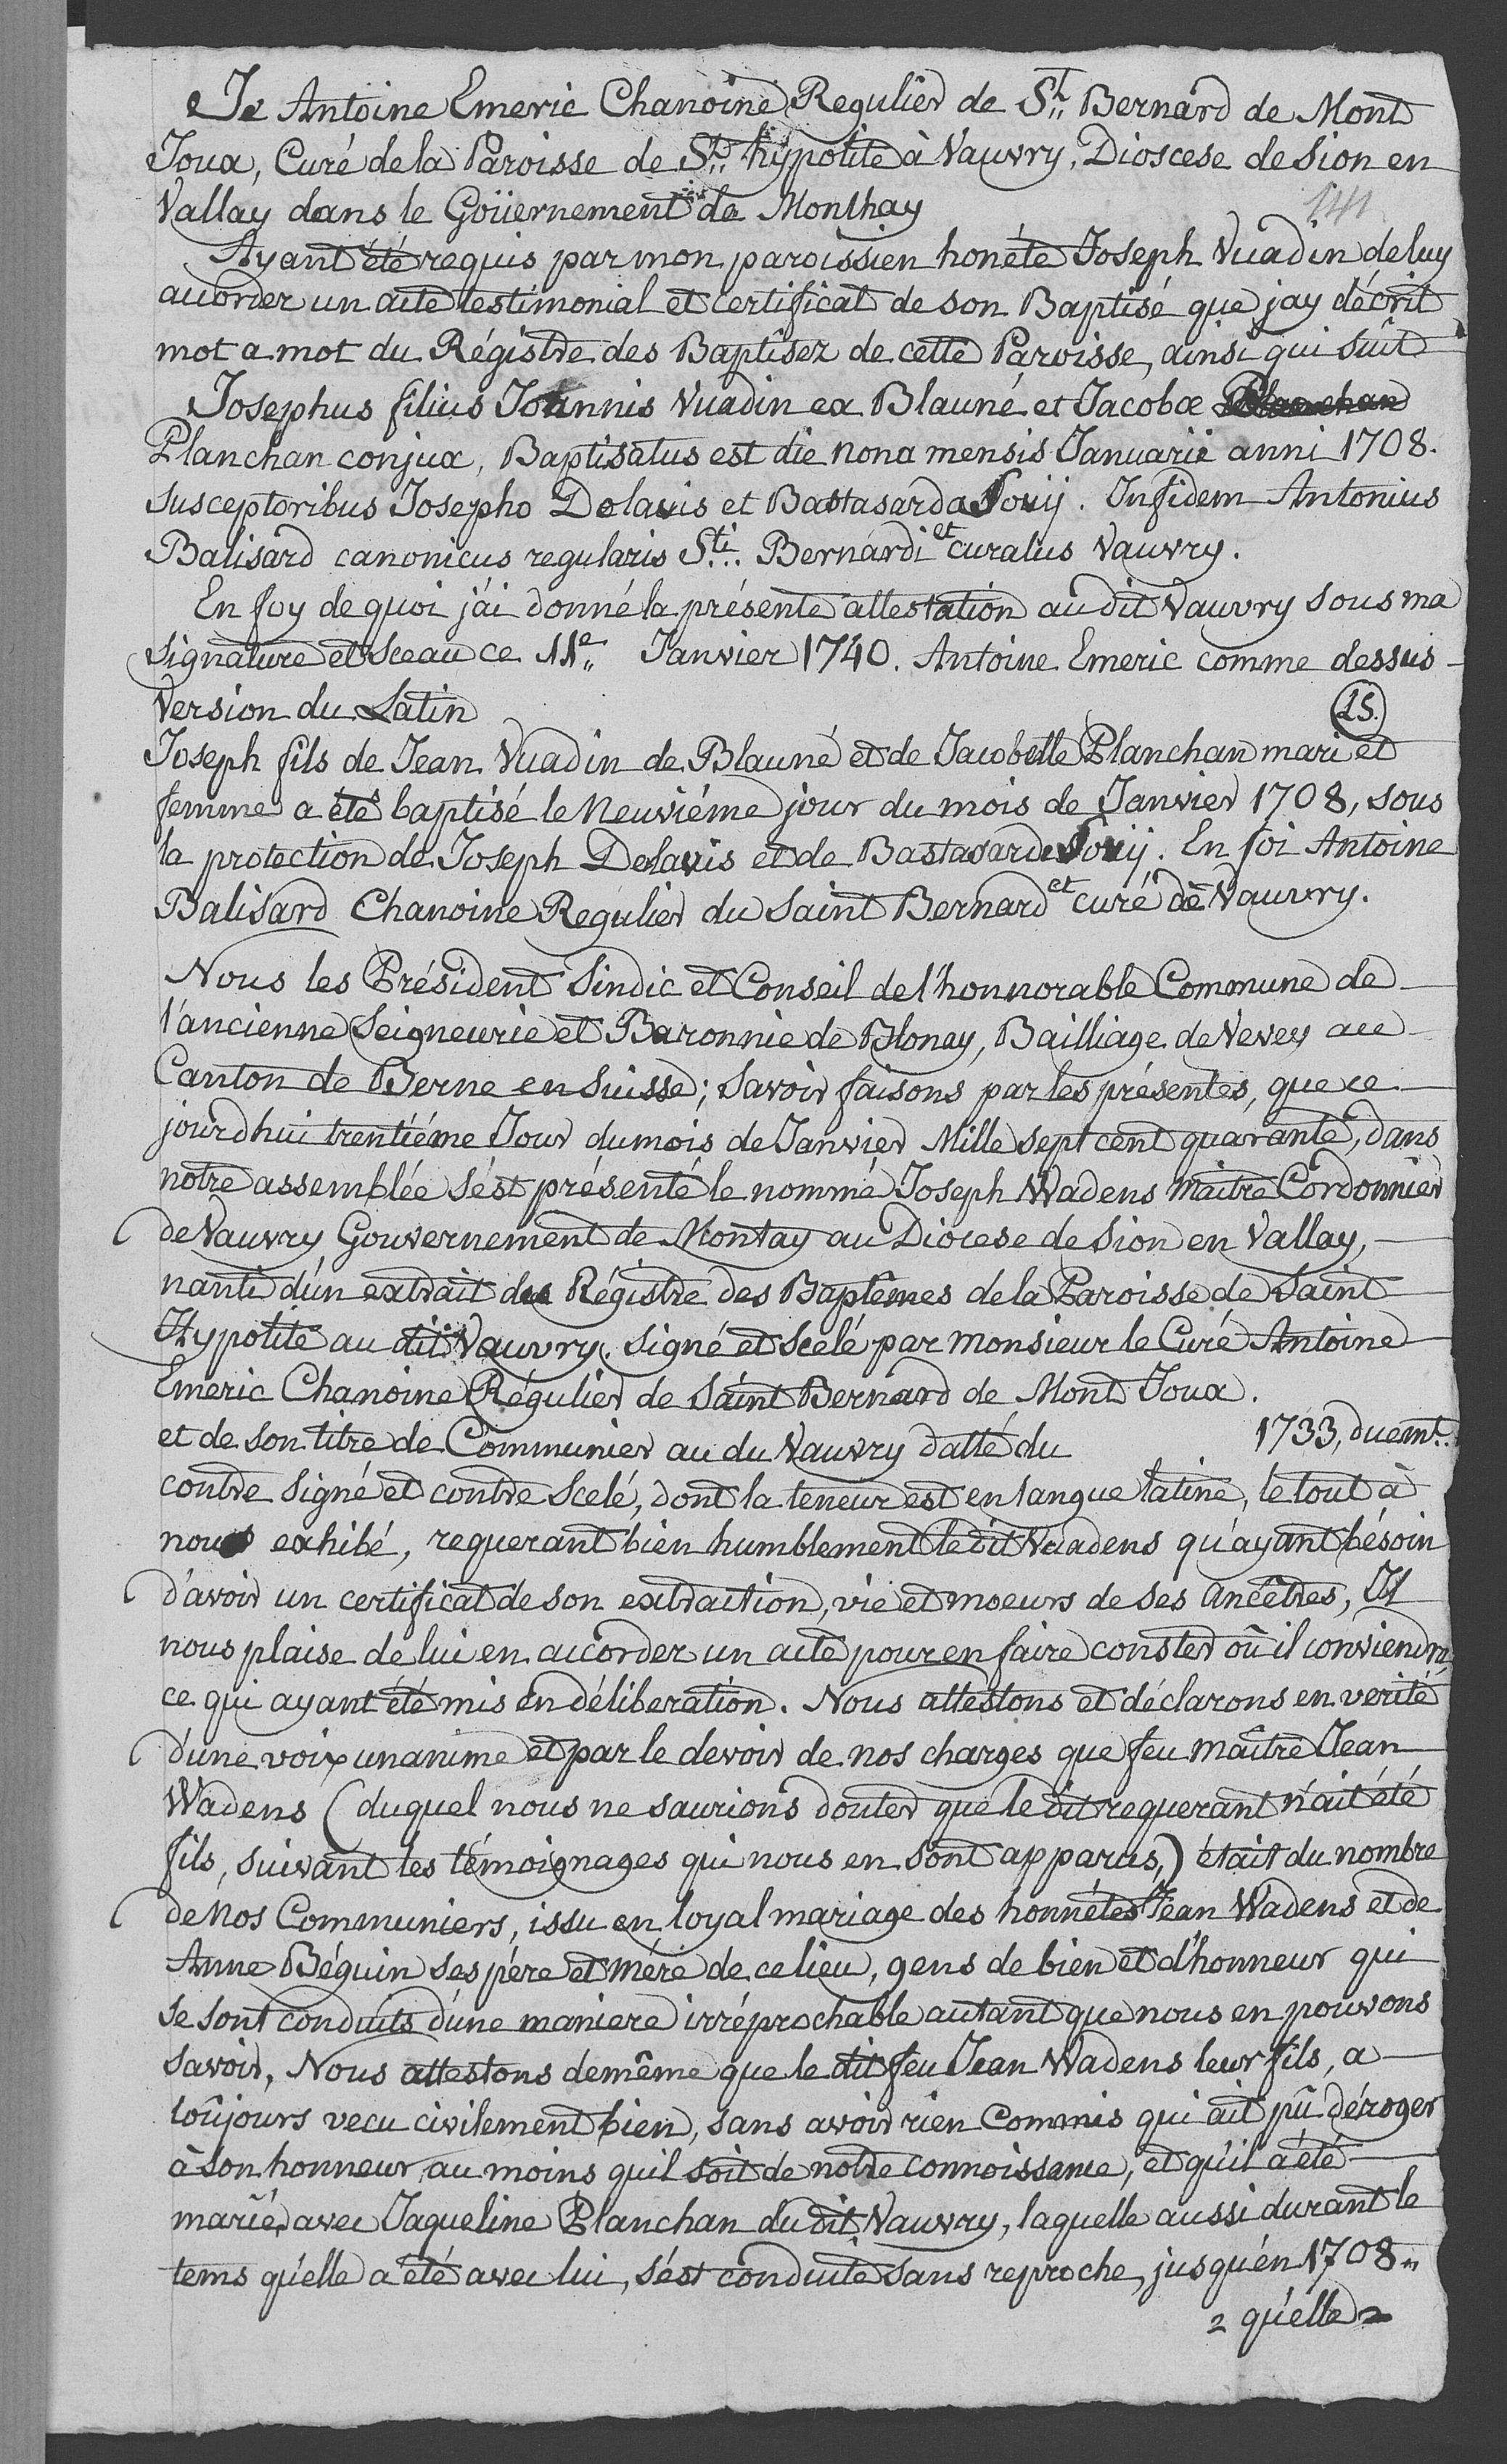 Je Antoine Emeric Chanoine Regulier de St. Bernard de Mont
Joux, Curé de la Paroisse de St. hÿpolite à Vauvry, Dioscese de Sion en
Vallay dans le Goüernement de Monthay
141
Ayant été requis par mon paroissien honéte Joseph Vuadin de luy
acorder un acte testimonial et certificat de son Baptisé que jay décrit
mot a mot du Régistre des Baptisez de cette Paroisse, ainsi qui suit
Josephus filius Johannis Vuadin ex Blauné et Jacobæ Planchan
Planchan conjux, Baptisatus est die nona mensis Januarii anni 1708.
Susceptoribus Josepho Delavis et Bastasarda Fovij. In fidem Antonius
Balisard canonicus regularis Sti. Bernardi et curatus Vauvry.
En foy de quoi j'ai donné la présente attestation audit Vauvry sous ma
Signature et Sceau ce 11e. Janvier 1740. Antoine Emeric comme dessus
Version du Latin
15.
Joseph fils de Jean Vuadin de Blauné et de Jacobette Planchan mari et
femme a étés baptisé le Neuviéme jour du mois de Janvier 1708, sous
la protection de Joseph Delavis et de Bastasarde Fovij. En foi Antoine
Balisard Chanoine Régulier du Saint Bernard et curé de Vauvry.
Nous les Président Sindic et Conseil de l'honnorable Commune de
l'ancienne Seigneurie et Baronnie de Blonay, Bailliage de Vevey au
Canton de Berne en Suisse; Savoir faisons par les présentes, que ce
jourdhui trentiéme Jour du mois de Janvier Mille sept cent quarante, dans
notre assemblée s'ést présenté le nommé Joseph Wadens Maitre Cordonnier
de Vauvry Gouvernement de Montay au Diocese de Sion en Vallay,
nanti d'un extrait des Régistre des Baptêmes de la Paroisse de Saint
Hypolite au dit Vauvry, signé et scelé par monsieur le Curé Antoine
Emeric Chanoine Régulier de Saint Bernard de Mont Joux.
et de son titre de Communier au du Vauvry datté du 1733, duemt.
contre signé et contre Scelé, dont la teneur est en langue latine, le tout à
nous exhibé, requerant bien humblement le dit Vuadens qu'ayant bésoin
d'avoir un certificat de son extraction, vie et moeurs de ses ancêtres, Il
nous plaise de lui en accorder un acte pour en faire conster où il conviendra,
ce qui ayant été mis en déliberation. Nous attestons et déclarons en verité
d'une voix unanime et par le devoir de nos charges que feu maître Jean
Wadens (duquel nous ne saurions douter que le dit requerant n'ait été
fils, suivant les témoignages qui nous en sont apparus,) était du nombre
de Nos Communiers, issu en loyal mariage des honnétes Jean Wadens et de
Anne Béguin ses pére et mére de ce lieu, gens de bien et d'honneur qui
se sont conduits d'une maniere irréprochable autant que nous en pouvons
savoir, Nous attestons demême que le dit feu Jean Wadens leur fils, a
toûjours vecu civilement bien, sans avoir rien Commis qui ait pû déroger
à son honneur, au moins qu'il soit de notre connoissance, et qu'il a été
marié, avec Jaqueline Planchan du dit Vauvry, laquelle aussi durant le
tems qu'elle a été avec lui, s'ést conduite sans reproche, jusqu'én 1708.
qu'elle